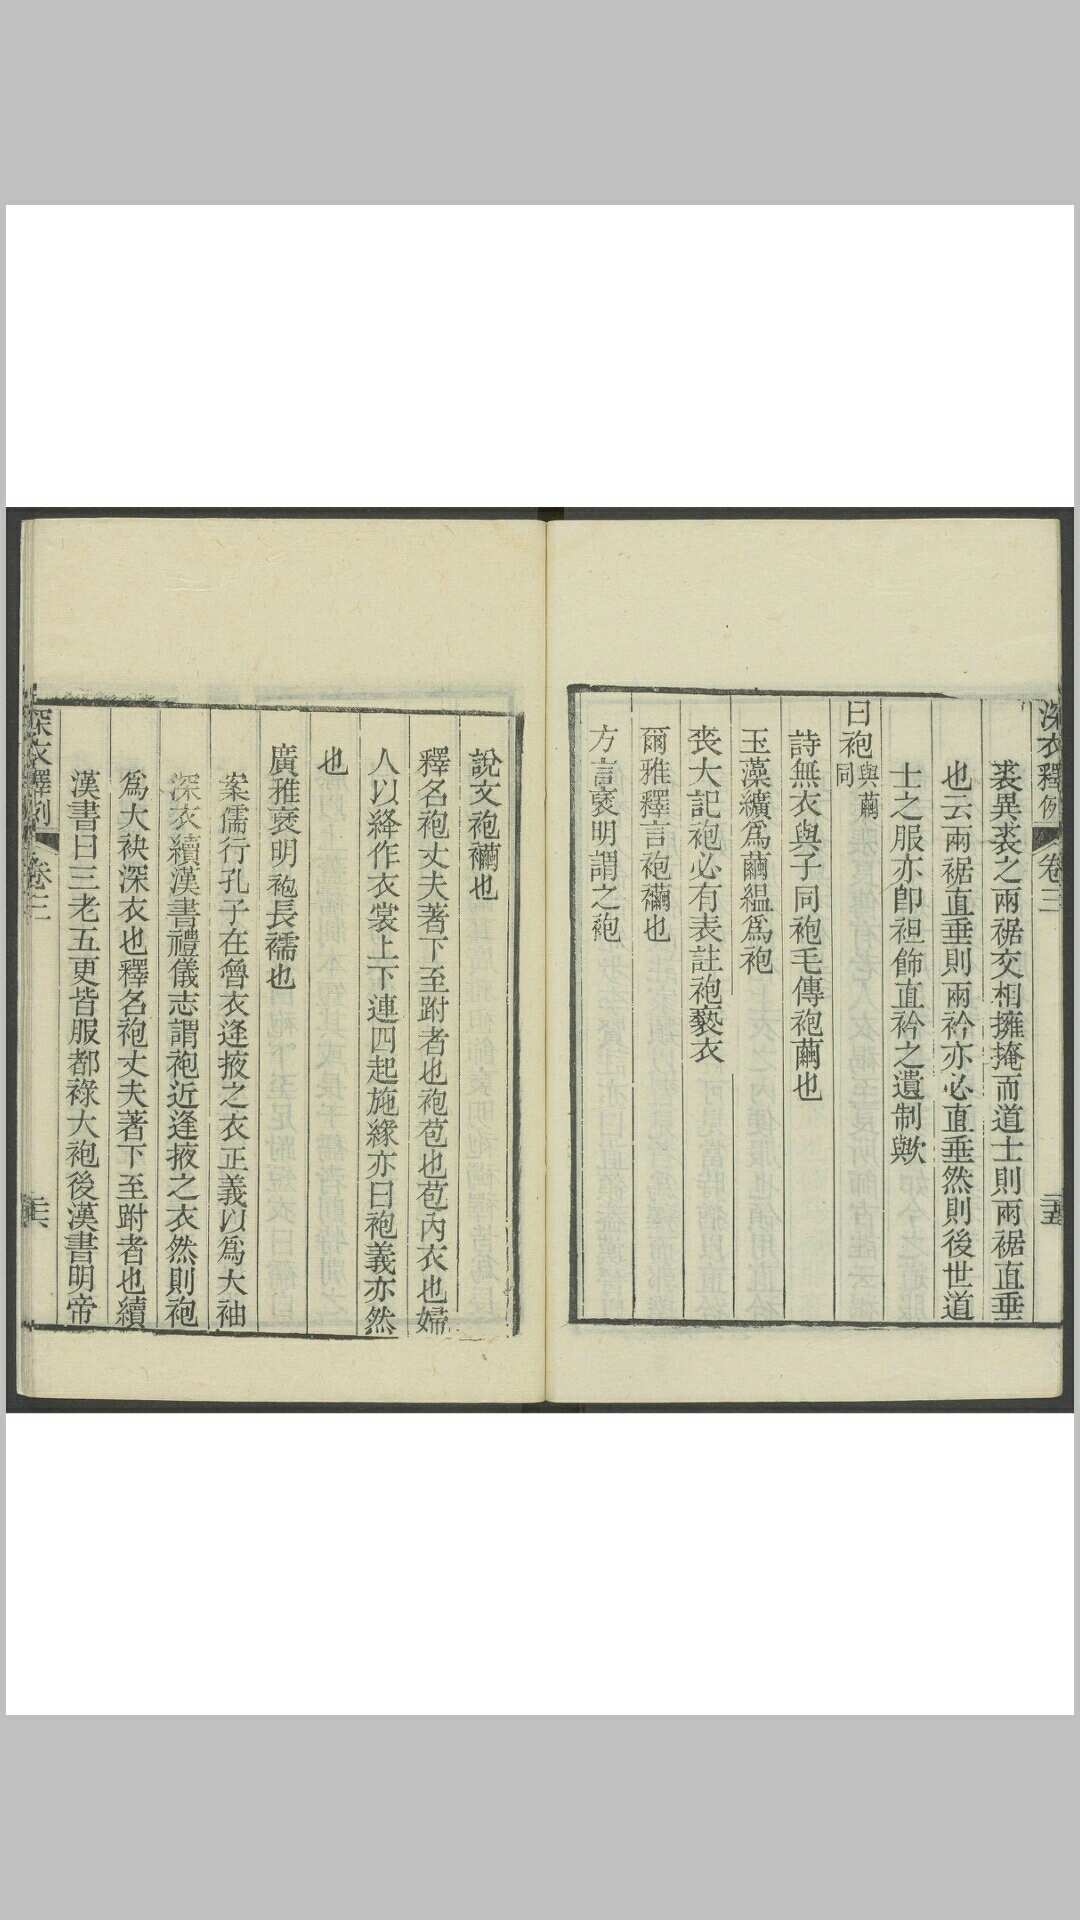 深衣釋例 卷三 二十五
裘異裘之兩裾交相擁掩而道士則兩裾直垂
也云兩裾直垂則兩衿亦必直垂然則後世道
士之服亦卽袒飾直衿之遺制歟
曰袍與繭同
詩無衣與子同袍毛傳袍繭也
玉藻纊爲繭縕爲袍
喪大記袍必有表註袍褻衣
爾雅釋言袍襺也
方言褒明謂之袍
說文袍襺也
釋名袍丈夫著下至跗者也袍苞也苞內衣也婦
人以絳作衣裳上下連四起施緣亦曰袍義亦然
也
廣雅褒明袍長襦也
案儒行孔子在魯衣逢掖之衣正義以爲大袖
深衣續漢書禮儀志謂袍近逢掖之衣然則袍
爲大袂深衣也釋名袍丈夫著下至跗者也續
漢書曰三老五更皆服都祿大袍後漢書明帝
深衣釋例 卷三 二十六